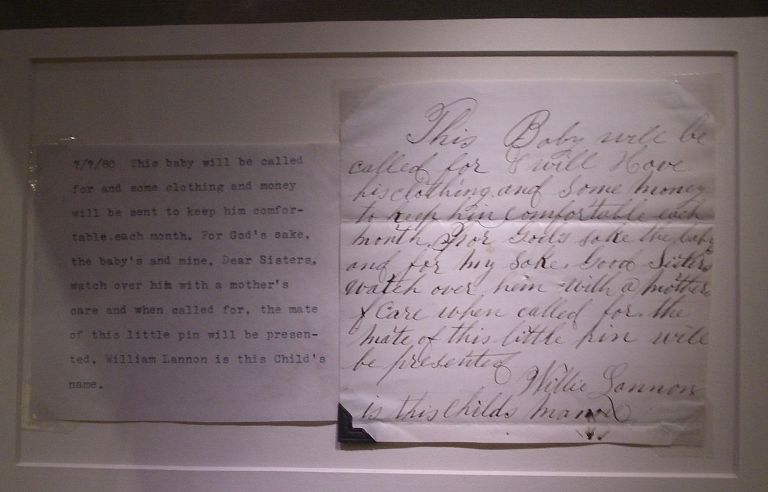 7/7/80 This baby will be called
for and some clothing and money
will be sent to keep him comfor-
table.each month. For God's sake,
the baby's and mine, Dear Sisters,
watch over him with a mother's
care and when called for, the mate
of this little pin will be presen-
ted. William Lannon is this Child's
name.
This Baby will be
called for I will Have
his clothing and some money
to keep him comfortable each
month. For God's sake the baby
and for my sake. Good Sisters
watch over him with a mother
s Care when called for the
mate of this little pin will
be presented
Willie Lannon
is this Childs